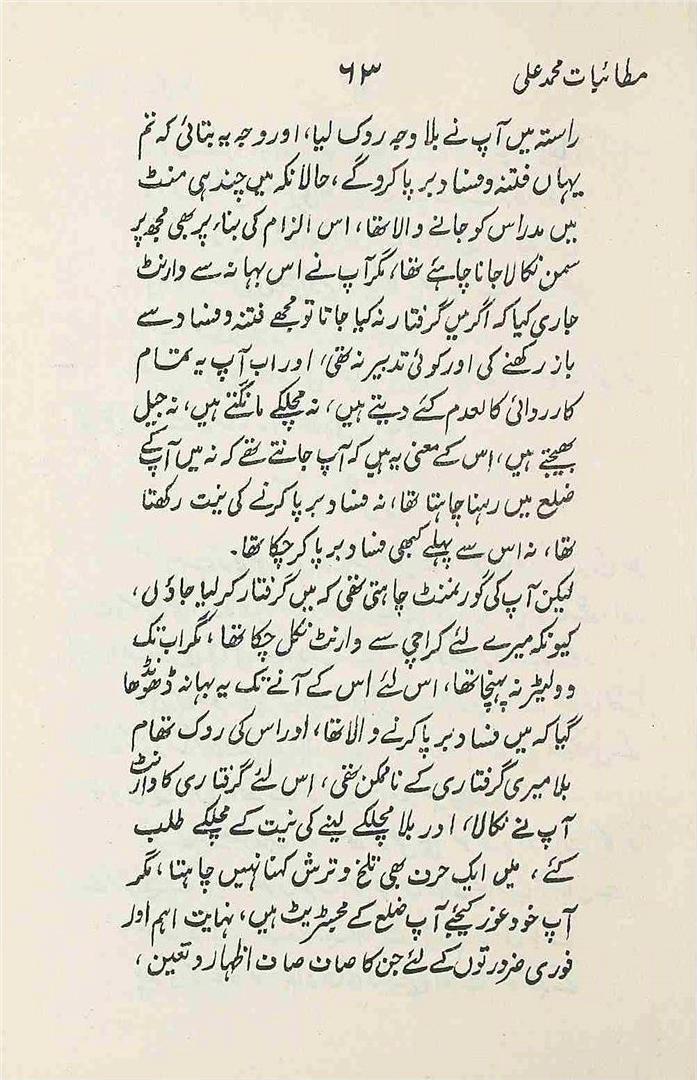 مطائبات محمد علی
۶۳
راستہ میں آپ نے بلا وجہ روک لیا، اور وجہ یہ بتائی کہ تم
یہاں فتنہ و فساد برپا کرو گے، حالانکہ میں چند ہی منٹ
میں مدراس کو جانے والا تھا، اس الزام کی بناء پر بھی مجھ پر
سمن نکالا جانا چاہئے تھا، مگر آپ نے اس بہانہ سے وارنٹ
جاری کیا کہ اگر میں گرفتار نہ کیا جاتا تو مجھے فتنہ و فساد سے
باز رکھنے کی اور کوئی تدبیر نہ تھی، اور اب آپ یہ تمام
کارروائی کالعدم کئے دیتے ہیں، نہ مچلکے مانگتے ہیں، نہ جیل
بھیجتے ہیں، اس کے معنی یہ ہیں کہ آپ جانتے تھے کہ نہ میں آپ کے
ضلع میں رہنا چاہتا تھا، نہ فساد برپا کرنے کی نیت رکھتا
تھا، نہ اس سے پہلے کبھی فساد برپا کر چکا تھا۔
لیکن آپ کی گورنمنٹ چاہتی تھی کہ میں گرفتار کر لیا جاؤں،
کیونکہ میرے لئے کراچی سے وارنٹ نکل چکا تھا، مگر اب تک
وولیٹر نہ پہنچا تھا، اس لئے اس کے آنے تک یہ بہانہ ڈھونڈھا
گیا کہ میں فساد برپا کرنے والا تھا، اور اس کی روک تھام
بلا میری گرفتاری کے ناممکن تھی، اس لئے گرفتاری کا وارنٹ
آپ نے نکالا، اور بلا مچلکے لینے کی نیت کے مچلکے طلب
کئے، میں ایک حرف بھی تلخ و ترش کہنا نہیں چاہتا، مگر
آپ خود غور کیجئے آپ ضلع کے مجسٹریٹ ہیں، نہایت اہم اور
فوری ضرورتوں کے لئے جن کا صاف صاف اظہار و تعین،